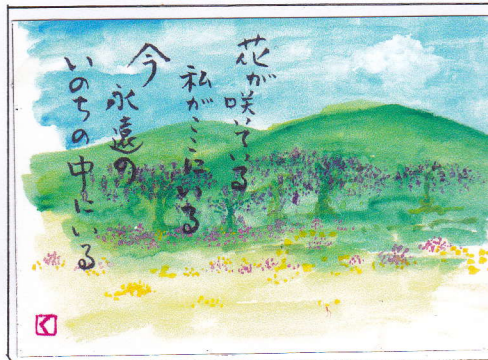 花が咲いている
私がここにいる
今
永遠の
いのちの中にいる
く